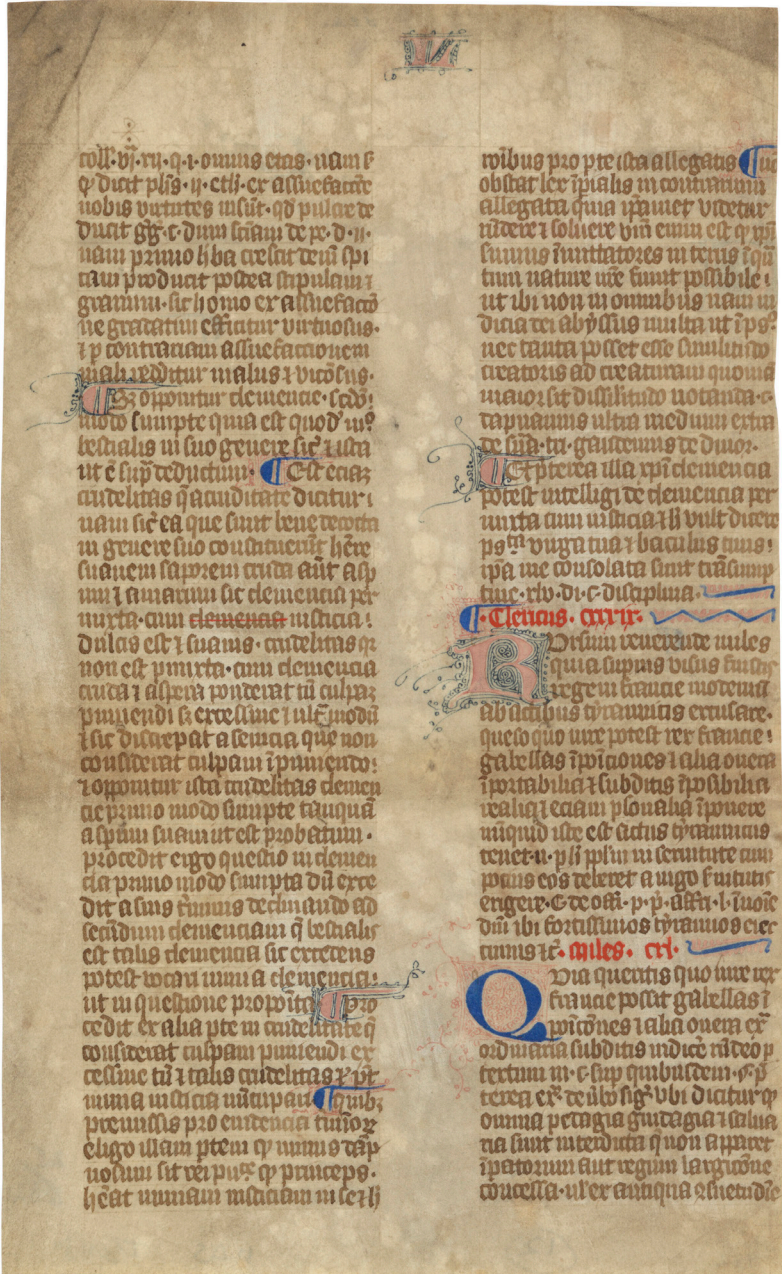 coll. vi. xii. q. i. omnis etas. nam
dicit phs. ii. ethi. ex assuefactiōe
nobis virtutes insūt. qd pulcre de
ducit gg. c. dum sciam de pe. d. ii.
nam primo hba crescit deīn spi
cam producit postea stipulam ⁊
granum. sic homo ex assuefactō
ne gradatim efficitur virtuosus.
⁊ p contrariam assuefactionem
mali redditur malus ⁊ viciosus.
opponitur clemencie. scdō
modo sumpte quia est quod
bestialis in suo genere sic̄ ⁊ ista
ut ē sup deductum. ¶ Est eciaꝫ
crudelitas q acuiditate dicitur.
nam sic̄ ea que sunt bene decocta
in genere suo constituerūt hēre
suauem saporem cruda aūt asp
um ⁊ amarum sic clemencia per
mixta. cum clemencia iusticia.
dulcis est ⁊ suauis. crudelitas
non est pmixta. cum clemencia
cruda ⁊ aspera ponderat tm̄ culpaꝫ
puniendi ꝫ excessiue ⁊ ult̄ modū
⁊ sic discrepat a seuicia que non
considerat culpam īpuniendo.
⁊ opponitur ista crudelitas clemen
cie primo modo sumpte tanquā
a spūm suam ut est probatum.
procedit ergo questio in clemen
cia primo modo sumpta dū exce
dit a suis t̄minis declinando ad
secūdum clemenciam q̄ bestialis
est talis clemencia sic excedens
potest vocari nimia clemencia.
ut in questione proponitā ¶ Pro
cedit ex alia pte in crudelitate q̄
considerat culpam puniendi ex
cessiue tū ⁊ talis crudelitas
nimia iusticia nūcupari ¶ quibꝫ
premissis pro euidencia
eligo illam ptem minus dāp
nosum sit rei pu princeps.
hēat nimiam iusticiam in se ⁊
roībus pro pte ista allegatis ¶ Nec
obstat lex īpialis in contrarium
allegata quia ipamet videtur
rūdere ⁊ soluere vim enim est
sumus īmittatores in tenis
tum nature nre fuerit possibile.
ut ibi non in omnibus nam iu
dicia dei abyssus multa ut ī ps
nec tanta posset esse similitudo
creatoris ad creaturam quoniā
maior sit dissilitudo notanda. c.
dapnamus ultra medium extra
de sūa. ta. gaudemus de diuor.
¶ Et pterea illa xpi clemencia
potest intelligi de clemencia per
mixta cum iusticia ⁊ h̄ vult dicere
psta virga tua ⁊ baculus tuus.
ipa me consolata sunt trāsump
tiue. xlv. di. c. disciplina.
¶ Clericus. cxxxix.
Rursum reuerende miles
quia supius visus fuistis
regem francie modernū
ab actibus tyrannicis excusare.
queso quo iure potest rex francie.
gabellas īpōiciones ⁊ alia onera
īportabilia ⁊ subditis īposibilia
realia ⁊ eciam psonalia īponere
nūquid iste est actus tyrannicus
tenet. n. pli pplm in seruitute cum
pocius eos deberet a iugo s̄uitutis
erigere. C de offi. p. p. affri. l. i uoīe
dni ibi fortissimos tyrannos eiec
timus ⁊c̄. Miles. cxl.
Quia queritis quo iure rex
francie possit gabellas ī
poicōnes ⁊ alia onera ex̄
ordinaria subditis indicē rūdeo p
textum in. c. sup quibusdem. ⁊ p
terea ex̄. de ubo sig. vbi dicitur
omnia pedagia guidagia ⁊ salina
ria sunt interdicta q non apparet
īpatorum aut regum largicōne
concessa. ul ex antiqua osuetudīe